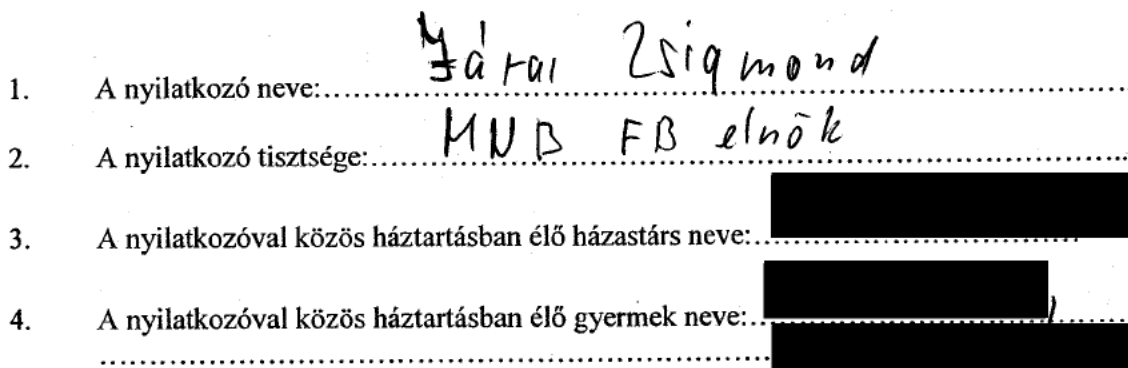 1. A nyilatkozó neve:........Járai Zsigmond........
2. A nyilatkozó tisztsége:........MNB FB elnök........
3. A nyilatkozóval közös háztartásban élő házastárs neve:........
4. A nyilatkozóval közös háztartásban élő gyermek neve:........
........